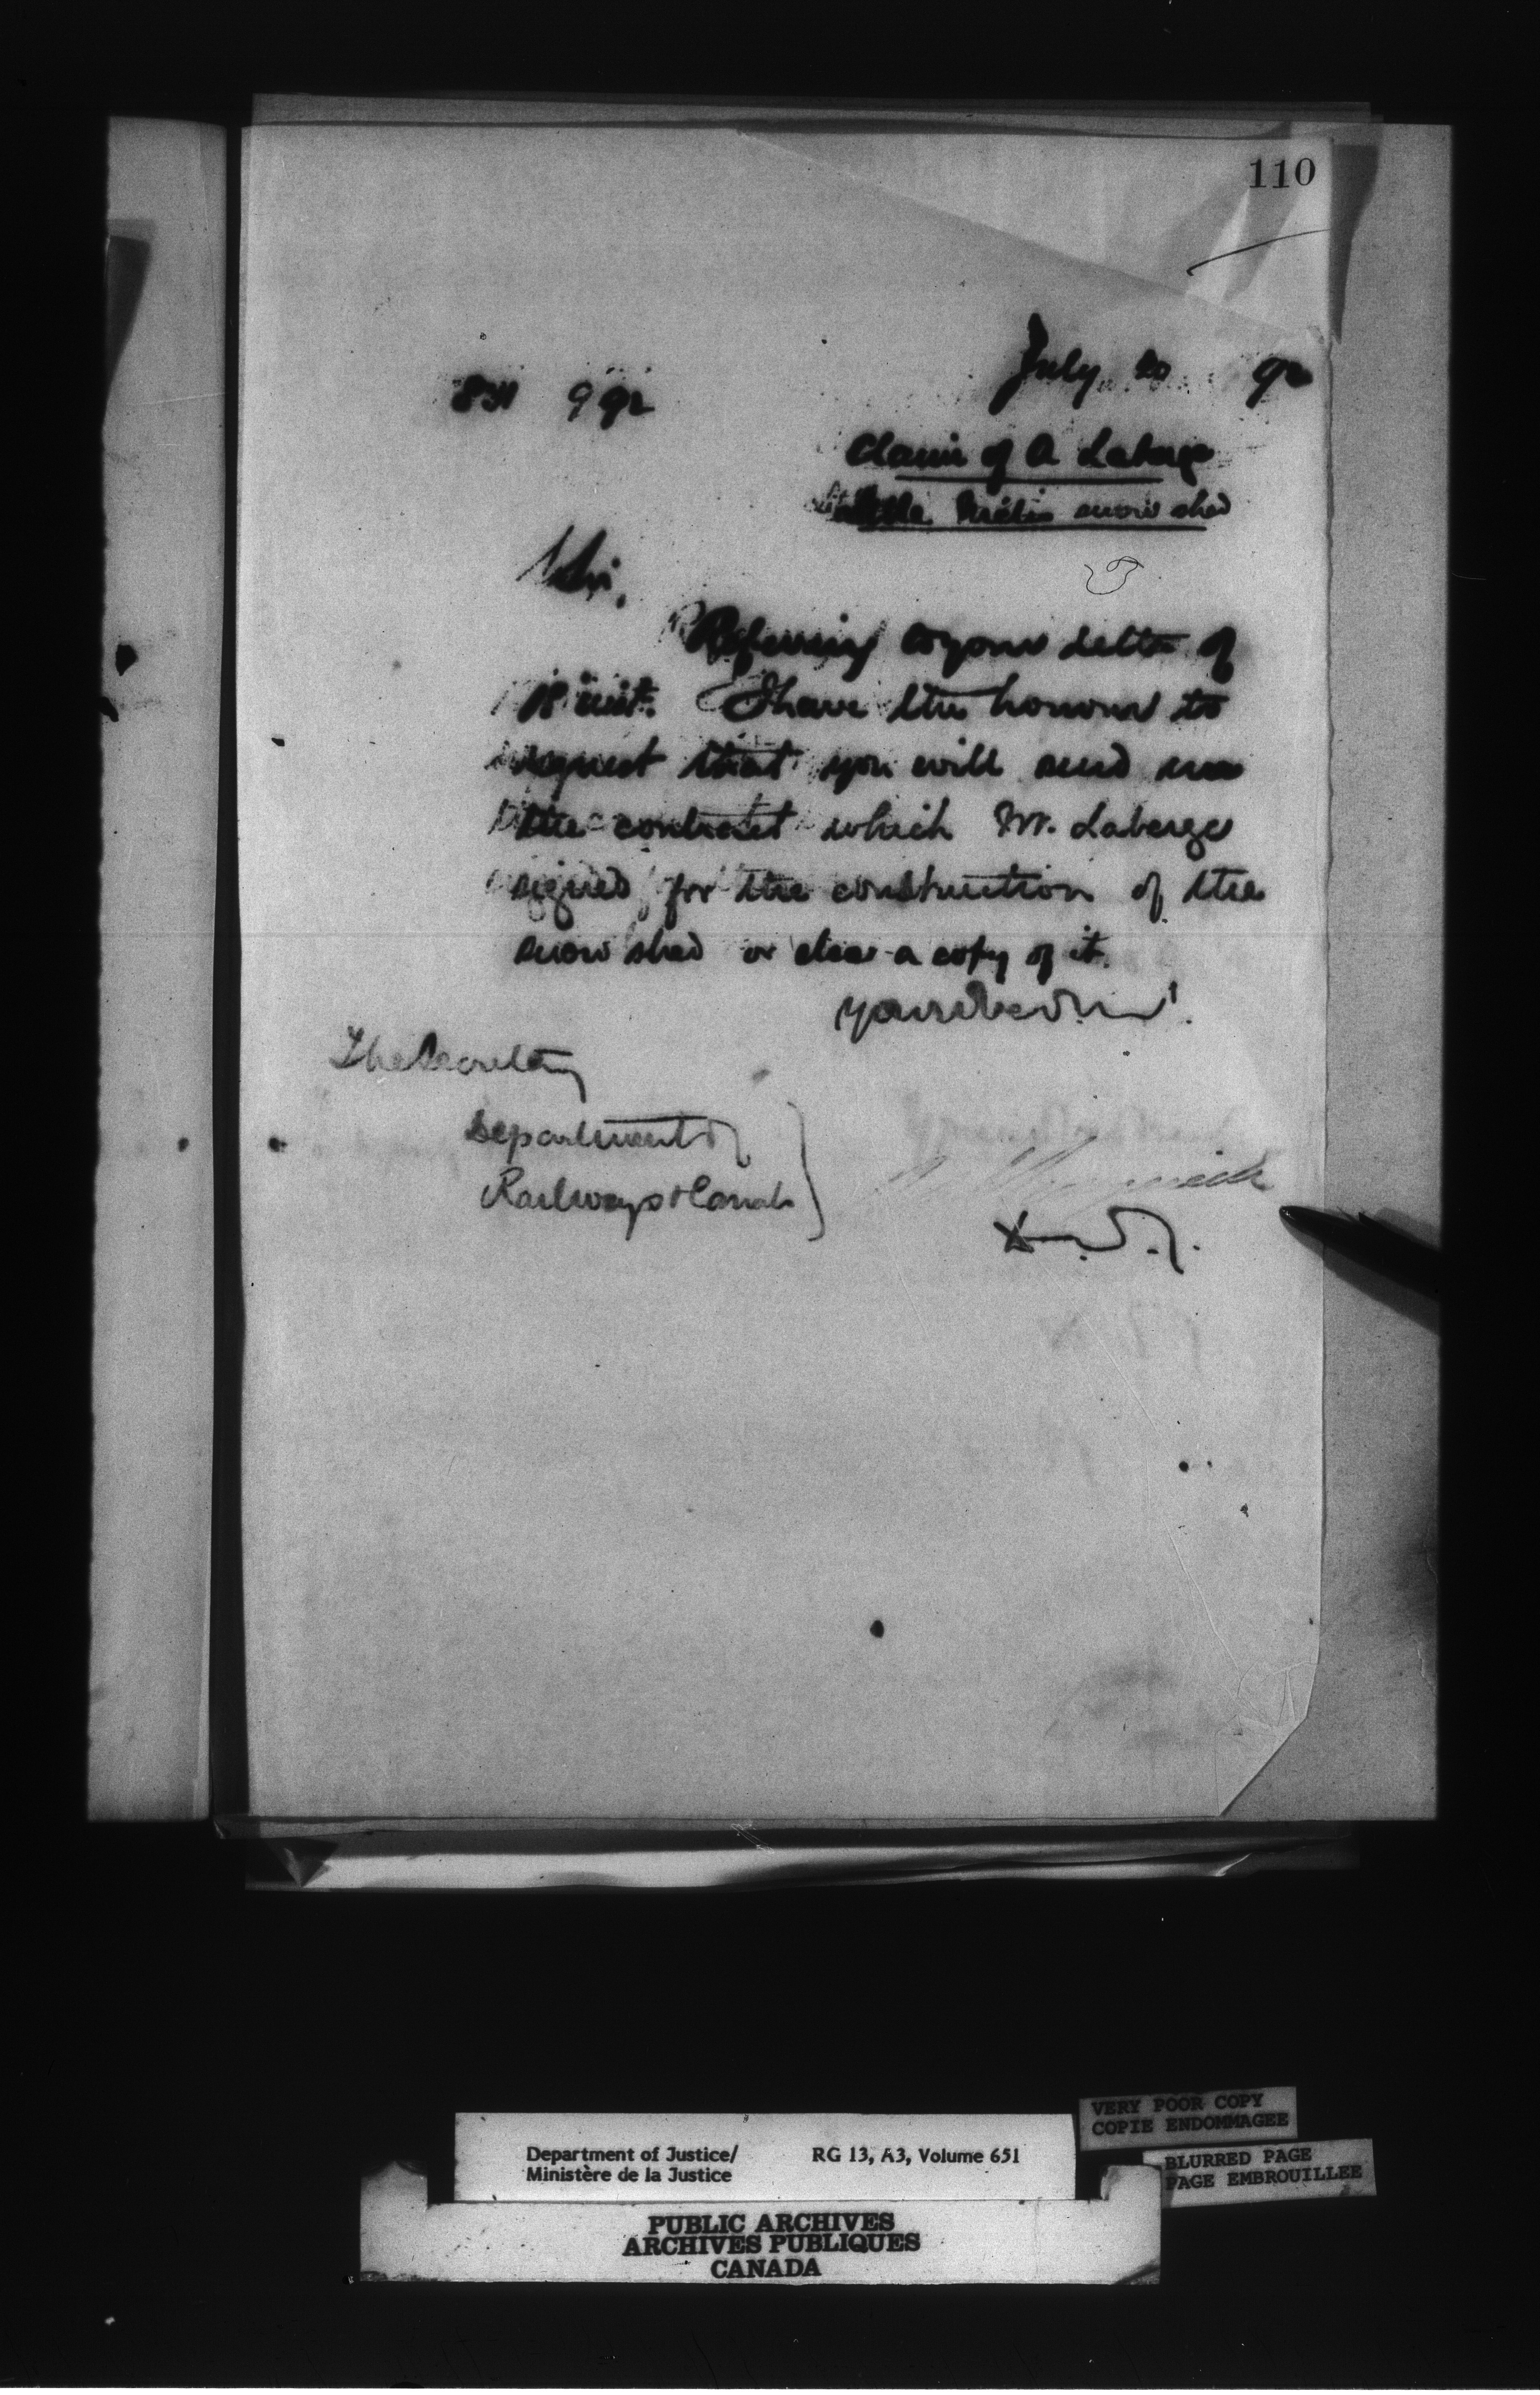 110
July 20 92
831 9 92
Claim of A Laberge
Little Métis snow shed
Sir,
Referring to your letter of
18 inst. I have the honour to
request that you will send me
the contract which Mr. Laberge
signed for the construction of the
snow shed or else a copy of it.
The Secretary
Department of
Railways & Canals
Department of Justice/ RG 13, A3, Volume 651
Ministère de la Justice
VERY POOR COPY
COPIE ENDOMMAGEE
BLURRED PAGE
PAGE EMBROUILLEE
PUBLIC ARCHIVES
ARCHIVES PUBLIQUES
CANADA